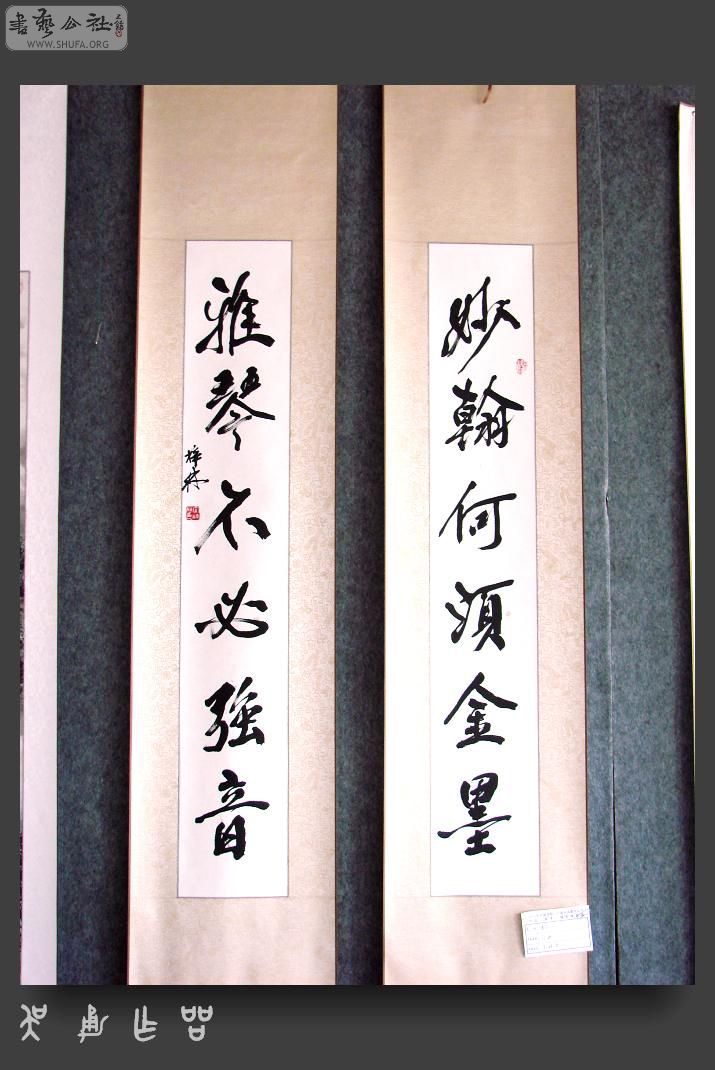 書藝公社
WWW.SHUFA.ORG
妙翰何須金墨
雅琴不必强音
梓林